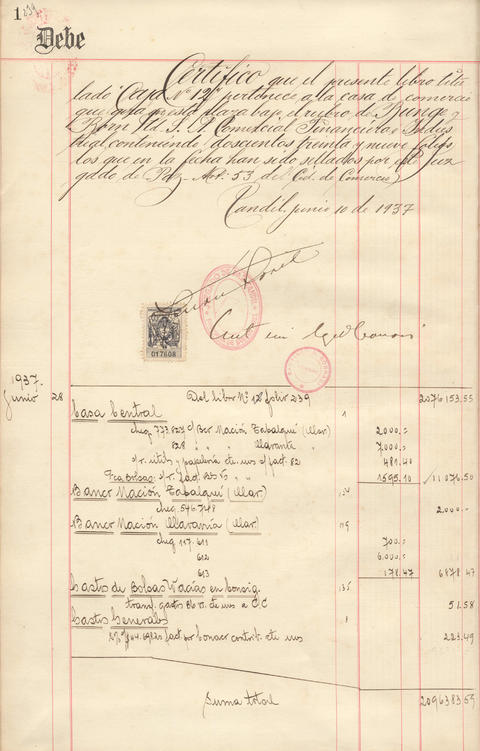 1 239
Debe
Certifico que el presente libro titu
lado "Caja Nº 12" pertenece a la casa de comercio
que gira en esta plaza bajo el rubro de Bunge y
Born Ltda S. A. Comercial Financiera e Indus
trial, conteniendo doscientos treinta y nueve folios
los que en la fecha han sido sellados por el Juz
gado de Paz - Art. 53 del Cód. de Comercio)
Tandil, junio 10 de 1937
Ante mi
017608
1937.
Junio 28 Del libro Nº 12 folio 239 2076153.55
Casa Central 1
cheq 773.827 c/ Bco Nación (Mar) 2000.-
828 " " " 7000.-
s/r. utils y papelería etc ms s/ fact. 82 481.40
Fca Bolsas s/r. fact. " " 1595.10 11.076.50
Banco Nación (Mar)
cheq. 546.748 2000.-
Banco Nación (Mar)
cheq 117.611 700.-
612 6000.-
613 178.47 6878.47
Gastos de Bolsas Vacías en Consig. 135
transf. gastos etc ms a C/C 51.58
Gastos Generales
fact por contrib. etc ms 223.49
Suma total 2096383.59